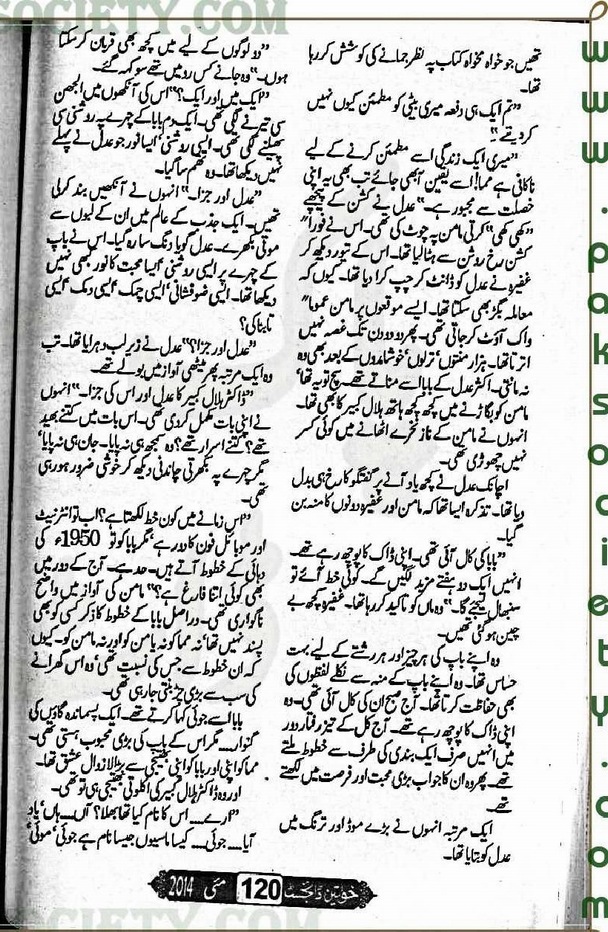 تھیں جو خواہ مخواہ کتاب پہ نظر جمانے کی کوشش کر رہا
تھا۔
"تم ایک ہی دفعہ میری بیٹی کو مطمئن کیوں نہیں
کر دیتے؟"
"میری ایک زندگی اسے مطمئن کرنے کے لیے
ناکافی ہے مما! اسے یقین آ بھی جائے تب بھی یہ اپنی
خصلت سے مجبور ہے۔" عدل نے کشن کے پیچھے
"کھی کھی" کرتی مامن پہ چوٹ کی تھی۔ اس نے فوراً"
کشن رخ روشن سے ہٹا لیا تھا۔ اس کے تیور دیکھ کر
غفیرہ نے عدل کو ڈانٹ کر چپ کرا دیا تھا۔ کیوں کہ
معاملہ بگڑ بھی سکتا تھا۔ ایسے موقعوں پر مامن عموماً"
واک آؤٹ کر جاتی تھی۔ پھر دو دو دن تک غصہ نہیں
اترتا تھا۔ ہزار منتوں، ترلوں، خوشامدوں کے بعد بھی وہ
نہ مانتی۔ اکثر عدل کے بابا اسے مناتے تھے۔ سچ تو یہ تھا،
مامن کو بگاڑنے میں کچھ کچھ ہاتھ ہلال کبیر کا بھی تھا۔
انہوں نے مامن کے ناز نخرے اٹھانے میں کوئی کسر
نہیں چھوڑی تھی۔
اچانک عدل نے کچھ یاد آنے پر گفتگو کا رخ ہی بدل
دیا تھا۔ تذکرہ ایسا تھا کہ مامن اور غفیرہ دونوں کا منہ بن
گیا۔
"بابا کی کال آئی تھی۔ اپنی ڈاک کا پوچھ رہے تھے۔
انہیں ایک دو ہفتے مزید لگیں گے۔ کوئی خط آئے تو
سنبھال لیجئے گا۔" وہ ماں کو تاکید کر رہا تھا۔ غفیرہ کچھ بے
چین ہو گئی تھیں۔
وہ اپنے باپ کی ہر چیز اور ہر رشتے کے لیے بہت
حساس تھا۔ وہ اپنے باپ کے منہ سے نکلے لفظوں کی
بھی حفاظت کرتا تھا۔ آج صبح ان کی کال آئی تھی۔ وہ
اپنی ڈاک کا پوچھ رہے تھے۔ آج کل کے تیز رفتار دور
میں انہیں صرف ایک بندی کی طرف سے خطوط ملتے
تھے۔ پھر وہ ان کا جواب بڑی محبت اور فرصت میں لکھتے
تھے۔
ایک مرتبہ انہوں نے بڑے موڈ اور ترنگ میں
عدل کو بتایا تھا۔
"دو لوگوں کے لیے میں کچھ بھی قربان کر سکتا
ہوں۔" وہ جانے کس رو میں تھے سو کہہ گئے۔
"ایک میں اور ایک؟" اس کی آنکھوں میں الجھن
سی تیرنے لگی تھی۔ ایک دم بابا کے چہرے پہ روشنی سی
پھیلنے لگی تھی۔ ایسی روشنی، ایسا نور جو عدل نے پہلے
نہیں دیکھا تھا۔ وہ تھم سا گیا۔
"عدل اور جزا۔" انہوں نے آنکھیں بند کر لی
تھیں۔ ایک جذب کے عالم میں ان کے لبوں سے
موتی بکھرے۔ عدل گویا دنگ سا رہ گیا۔ اس نے باپ
کے چہرے پر ایسی روشنی، ایسا محبت کا نور کبھی نہیں
دیکھا تھا۔ ایسی ضوفشانی، ایسی چمک، ایسی دمک، ایسی
تابناکی؟
"عدل اور جزا؟" عدل نے زیر لب دہرایا تھا۔ تب
وہ ایک مرتبہ پھر میٹھی آواز میں بولے تھے۔
"ڈاکٹر ہلال کبیر کا عدل اور اس کی جزا۔" انہوں
نے اپنی بات مکمل کر دی تھی۔ اس بات میں کتنے بھید
تھے؟ کتنے اسرار تھے؟ وہ سمجھ ہی نہ پایا۔ جان ہی نہ پایا،
مگر چہرے پہ بکھرتی چاندنی دیکھ کر خوشی ضرور ہو رہی
تھی۔
"اس زمانے میں کون خط لکھتا ہے؟ اب تو انٹرنیٹ
اور موبائل فون کا دور ہے، مگر بابا کو تو 1950ء کی
دہائی کے خطوط آتے ہیں۔ حد ہے۔ آج کے دور میں
بھی کوئی اتنا فارغ ہے؟" مامن کی آواز میں واضح
ناگواری تھی۔ دراصل بابا کے خطوط کا ذکر کسی کو بھی
پسند نہیں تھا، نہ مما کو نہ یامن کو اور نہ مامن کو۔ کیوں
کہ ان خطوط سے جس کی نسبت تھی، وہ اس گھرانے
کی سب سے بڑی چڑ بنتی جا رہی تھی۔
بابا اسے جوئی کہا کرتے تھے۔ ایک پسماندہ گاؤں کی
گنوار۔۔۔ مگر اس کے باپ کی بڑی محبوب ہستی تھی۔
مما کو اپنی اور بابا کو اپنی بھتیجی سے بڑا لازوال عشق تھا۔
اور وہ ڈاکٹر ہلال کبیر کی اکلوتی بھتیجی ہی تو تھی۔
"ارے۔۔۔ اس کا نام کیا تھا بھلا؟ آں۔۔۔ ہاں، یاد
آیا۔۔۔ جوئی۔۔۔ کیسا ماسیوں جیسا نام ہے جوئی، موئی،
خواتین ڈائجسٹ 120 مئی 2014
www.paksociety.com
SOCIETY.COM
SOCIETY.COM